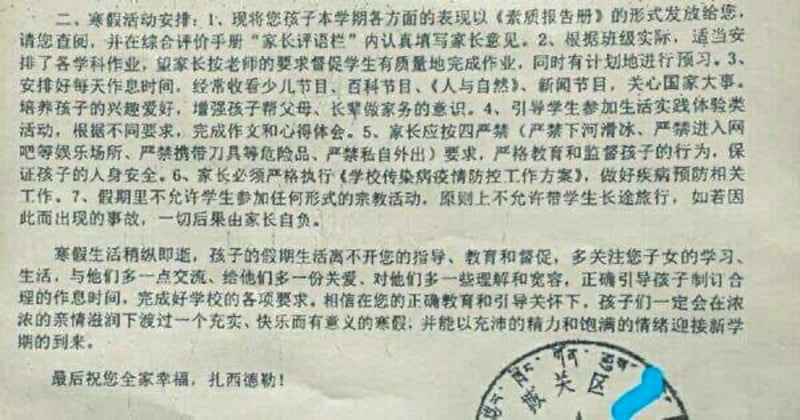 二、寒假活动安排：1、现将您孩子本学期各方面的表现以《素质报告册》的形式发放给您，
请您查阅，并在综合评价手册“家长评语栏”内认真填写家长意见。2、根据班级实际，适当安
排了各学科作业，望家长按老师的要求督促学生有质量地完成作业，同时有计划地进行预习。3、
安排好每天作息时间，经常收看少儿节目、百科节目、《人与自然》、新闻节目，关心国家大事。
培养孩子的兴趣爱好，增强孩子帮父母、长辈做家务的意识。4、引导学生参加生活实践体验类
活动，根据不同要求，完成作文和心得体会。5、家长应按四严禁（严禁下河滑冰、严禁进入网
吧等娱乐场所、严禁携带刀具等危险品、严禁私自外出）要求，严格教育和监督孩子的行为，保
证孩子的人身安全。6、家长必须严格执行《学校传染病疫情防控工作方案》，做好疾病预防相关
工作。7、假期里不允许学生参加任何形式的宗教活动，原则上不允许带学生长途旅行，如若因
此而出现的事故，一切后果由家长自负。
寒假生活稍纵即逝，孩子的假期生活离不开您的指导、教育和督促，多关注您子女的学习、
生活，与他们多一点交流、给他们多一份关爱、对他们多一些理解和宽容，正确引导孩子制订合
理的作息时间，完成好学校的各项要求。相信在您的正确教育和引导关怀下，孩子们一定会在浓
浓的亲情滋润下渡过一个充实、快乐而有意义的寒假，并能以充沛的精力和饱满的情绪迎接新学
期的到来。
最后祝您全家幸福，扎西德勒！
城关区